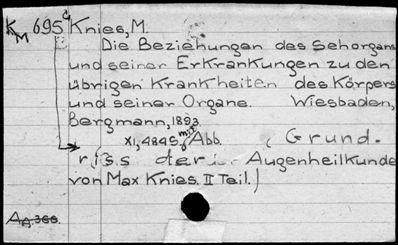 K M 695 c Knies, M.
Die Beziehungen des Sehorgans
und seiner Erkrankungen zu den
übrigen Krankheiten des Körpers
und seiner Organe. Wiesbaden,
Bergmann, 1893.
XI, 484 S. mit Abb. (Grund-
riss der Augenheilkunde
von Max Knies. II Teil.)
AA.366.